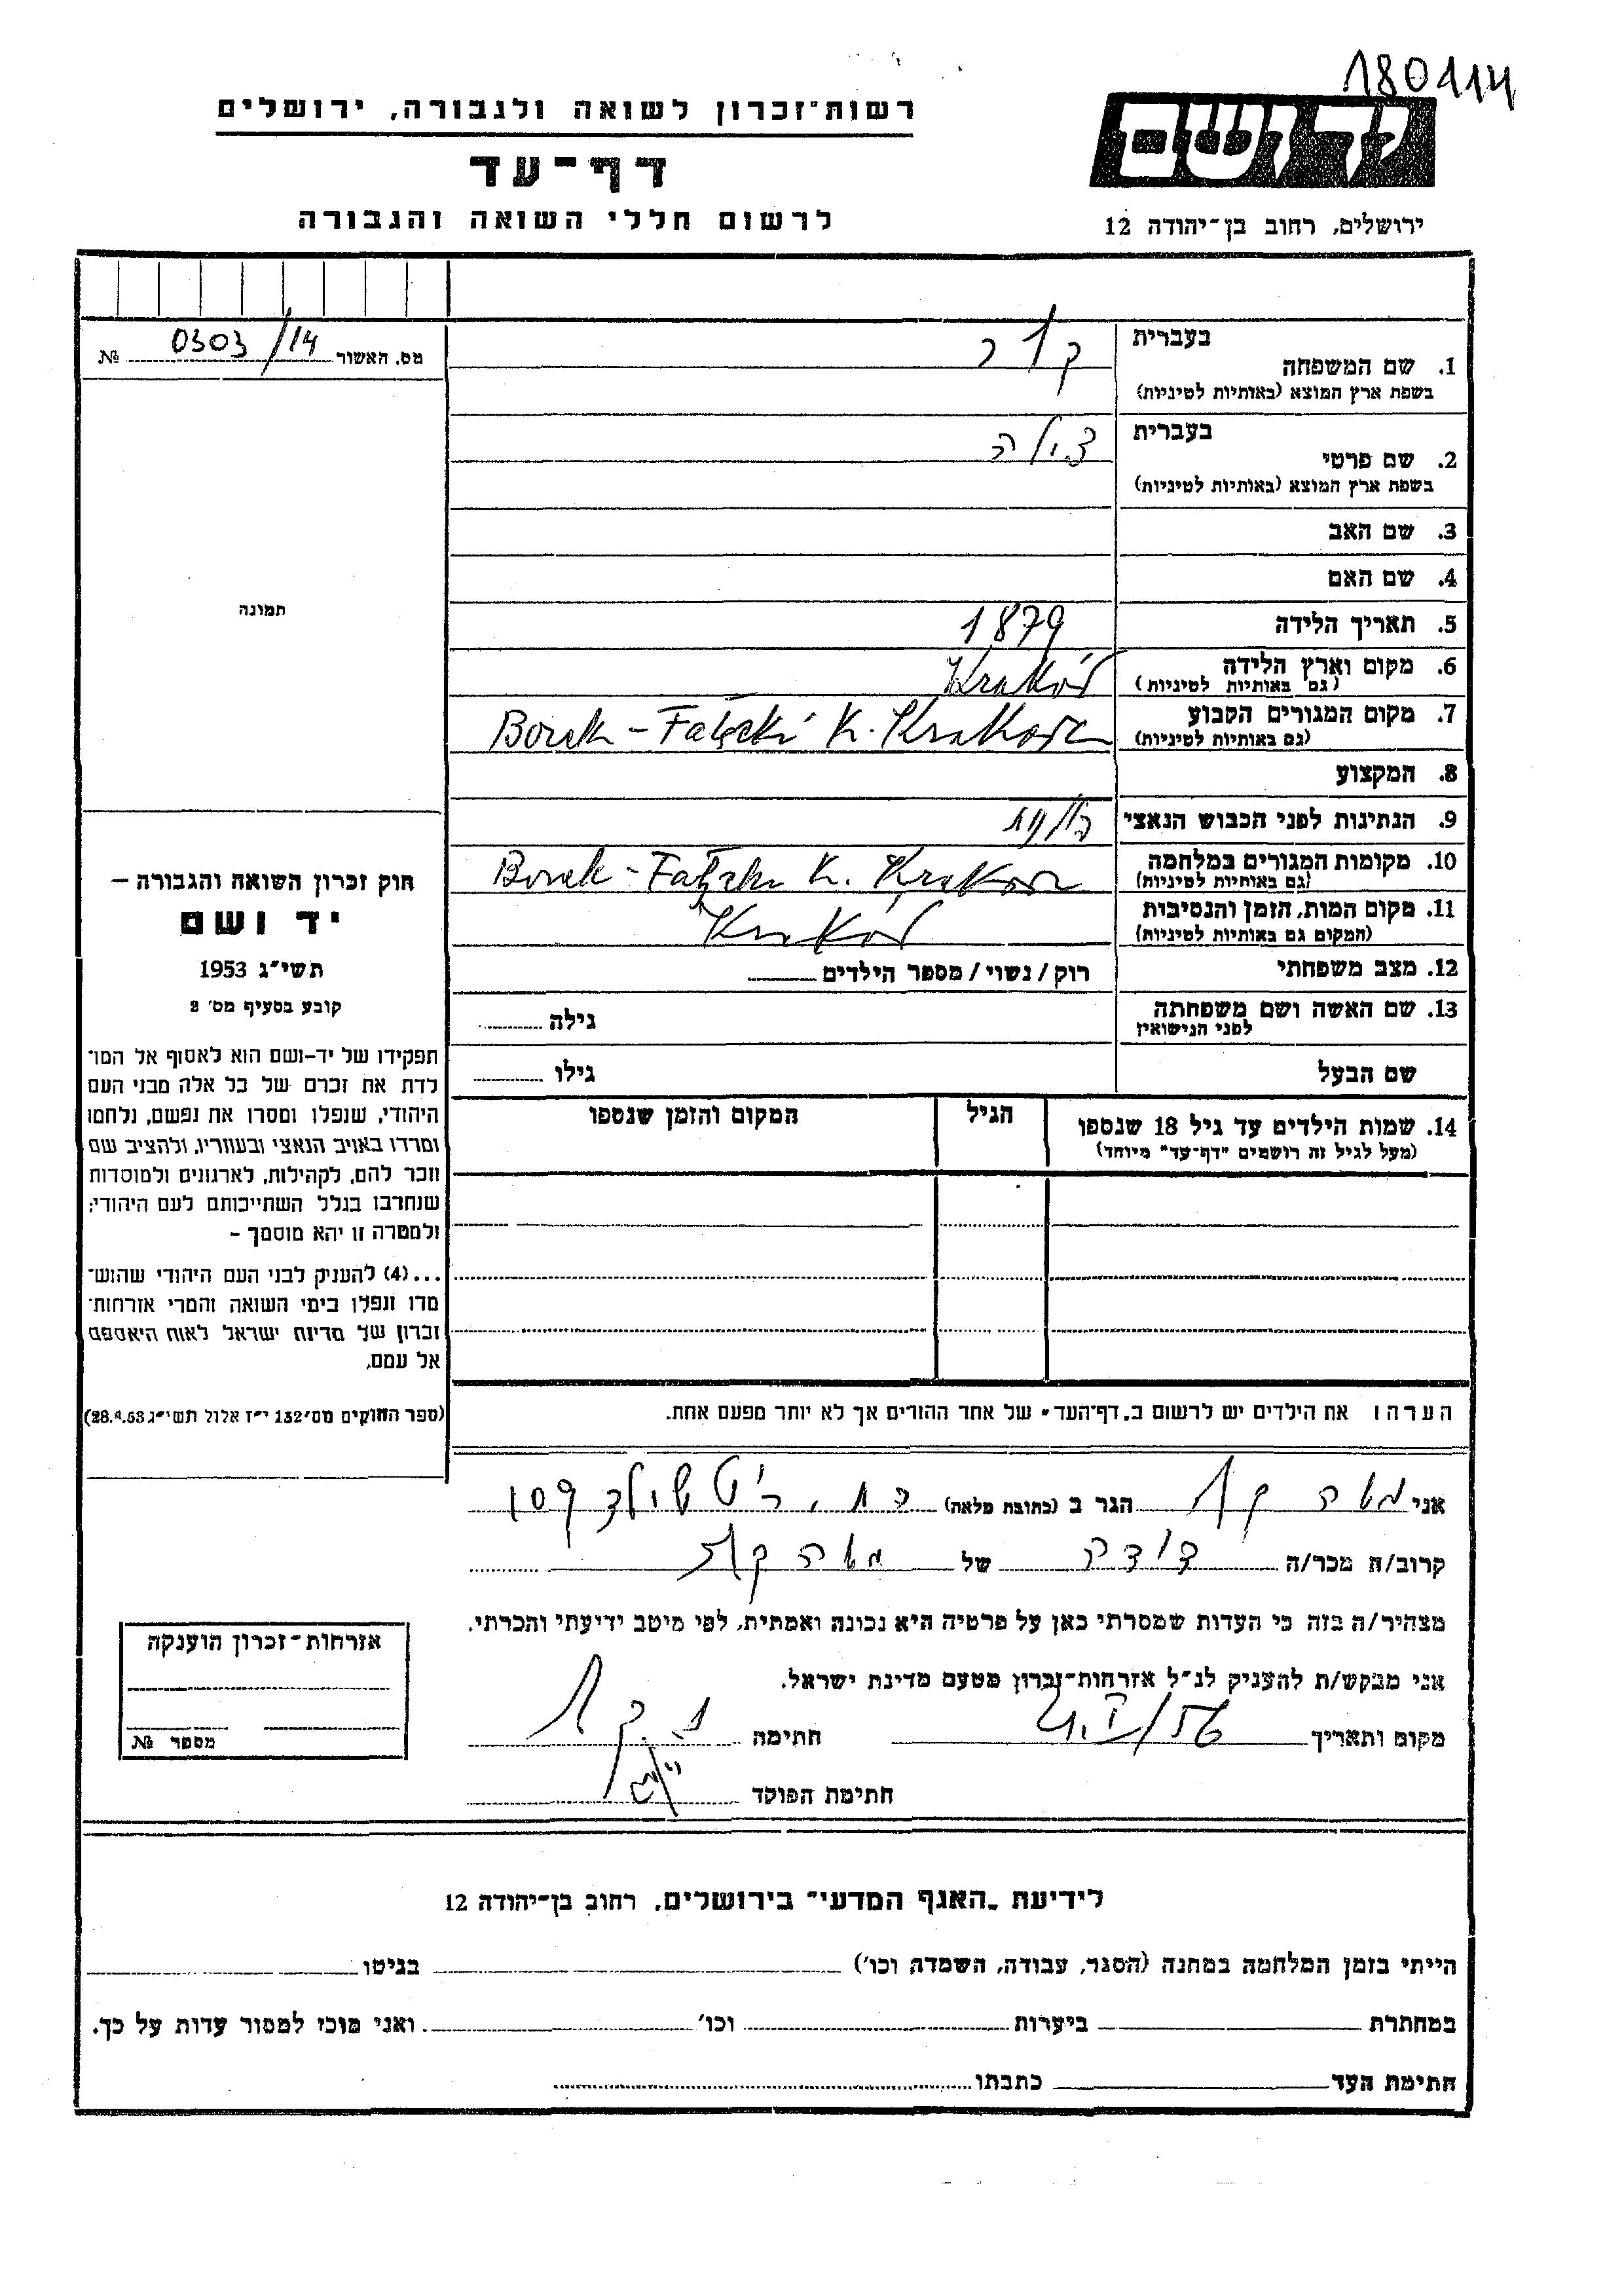 180114
רשות־זכרון לשואה ולגבורה, ירושלים
דף־עד
לרשום חללי השואה והגבורה
יד ושם
ירושלים, רחוב בן־יהודה 12
מס. האשור 0303/14 №
תמונה
חוק זכרון השואה והגבורה —
יד ושם
תשי״ג 1953
קובע בסעיף מס׳ 2
תפקידו של יד-ושם הוא לאסוף אל המו־
לדת את זכרם של כל אלה מבני העם
היהודי, שנפלו ומסרו את נפשם, נלחמו
ומרדו באויב הנאצי ובעוזריו, ולהציב שם
וזכר להם, לקהילות, לארגונים ולמוסדות
שנחרבו בגלל השתייכותם לעם היהודי;
ולמטרה זו יהא מוסמך –
...(4) להעניק לבני העם היהודי שהוש־
מדו ונפלו בימי השואה והמרי אזרחות־
זכרון של מדינת ישראל לאות היאספם
אל עמם.
(ספר החוקים מס׳ 132 י״ז אלול תשי״ג 28.8.53)
בעברית
1. שם המשפחה
בשפת ארץ המוצא (באותיות לטיניות)
בעברית צילה
2. שם פרטי
בשפת ארץ המוצא (באותיות לטיניות)
3. שם האב
4. שם האם
5. תאריך הלידה 1879
6. מקום וארץ הלידה Kraków
(גם באותיות לטיניות)
7. מקום המגורים הקבוע Borek - Fałęcki K. Krakowa
(גם באותיות לטיניות)
8. המקצוע
9. הנתינות לפני הכבוש הנאצי
10. מקומות המגורים במלחמה Borek - Fałęcki K. Krakowa
(גם באותיות לטיניות)
11. מקום המות, הזמן והנסיבות Kraków
(המקום גם באותיות לטיניות)
12. מצב משפחתי רוק / נשוי / מספר הילדים
13. שם האשה ושם משפחתה גילה
לפני הנישואין
שם הבעל גילו
14. שמות הילדים עד גיל 18 שנספו הגיל המקום והזמן שנספו
(מעל לגיל זה רושמים "דף־עד" מיוחד)
הערה: את הילדים יש לרשום ב„דף־העד״ של אחד ההורים אך לא יותר מפעם אחת.
אני הגר ב (כתובת מלאה) 109
קרוב/ה מכר/ה דודה של
מצהיר/ה בזה כי העדות שמסרתי כאן על פרטיה היא נכונה ואמתית, לפי מיטב ידיעתי והכרתי.
אני מבקש/ת להעניק לנ״ל אזרחות־זכרון מטעם מדינת ישראל.
מקום ותאריך חתימה
חתימת הפוקד
אזרחות־זכרון הוענקה
מספר №
לידיעת „האגף המדעי״ בירושלים, רחוב בן־יהודה 12
הייתי בזמן המלחמה במחנה (הסגר, עבודה, השמדה וכו׳) בגיטו
במחתרת ביערות וכו׳ ואני מוכן למסור עדות על כך.
חתימת העד כתבתו